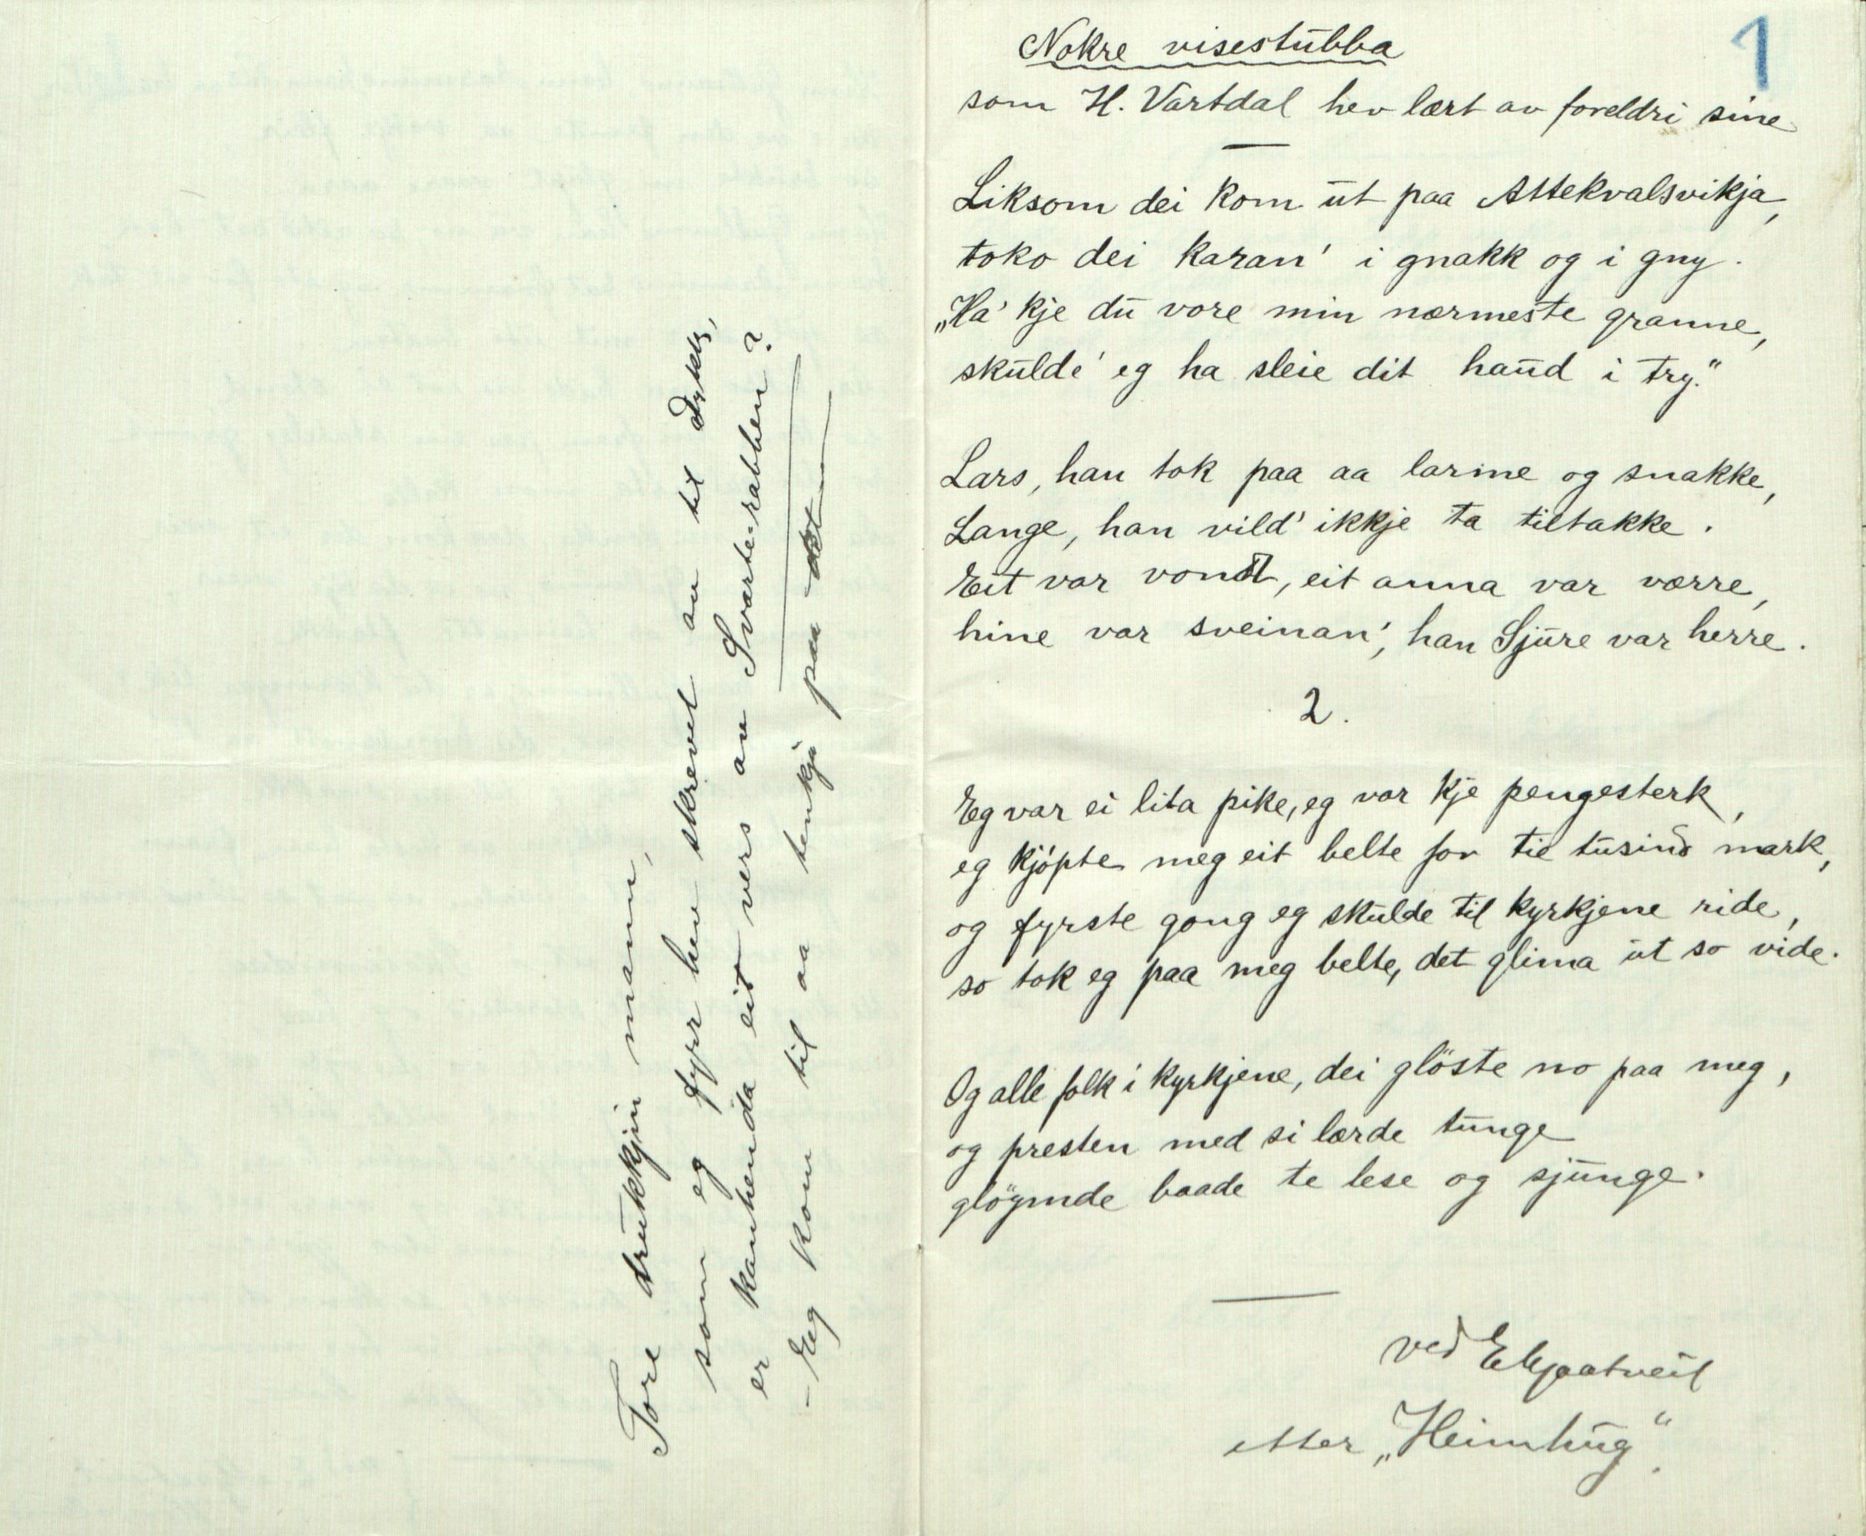 Tore drukkjin mann,
som eg fyrr hev skrevet av til Dykk,
er kanhenda eit vers av Svarte-rabben?
- Eg kom til aa tenkja paa det
1
Nokre visestubba
som H. Vartdal hev lært av foreldri sine
Liksom dei kom ut paa Attekvalsvikja,
toko dei karan' i gnakk og i gny.
„Ha' kje du vore min nærmeste granne,
skulde' eg ha sleie dit haud i try."
Lars, han tok paa aa larme og snakke,
Lange, han vild' ikkje ta tiltakke.
Eit var vondt, eit anna var værre,
hine var sveinan', han Sjure var herre.
2.
Eg var ei lita pike, eg var kje pengesterk,
eg kjøpte meg eit belte for tie tusind mark,
og fyrste gong eg skulde til kyrkjene ride,
so tok eg paa meg belte, det glima ut so vide.
Og alle folk i kyrkjene, dei glöste no paa meg,
og presten med si lærde tunge
glöymde baade te lese og sjunge.
ved E Kjaatveit
etter „Heimhug".